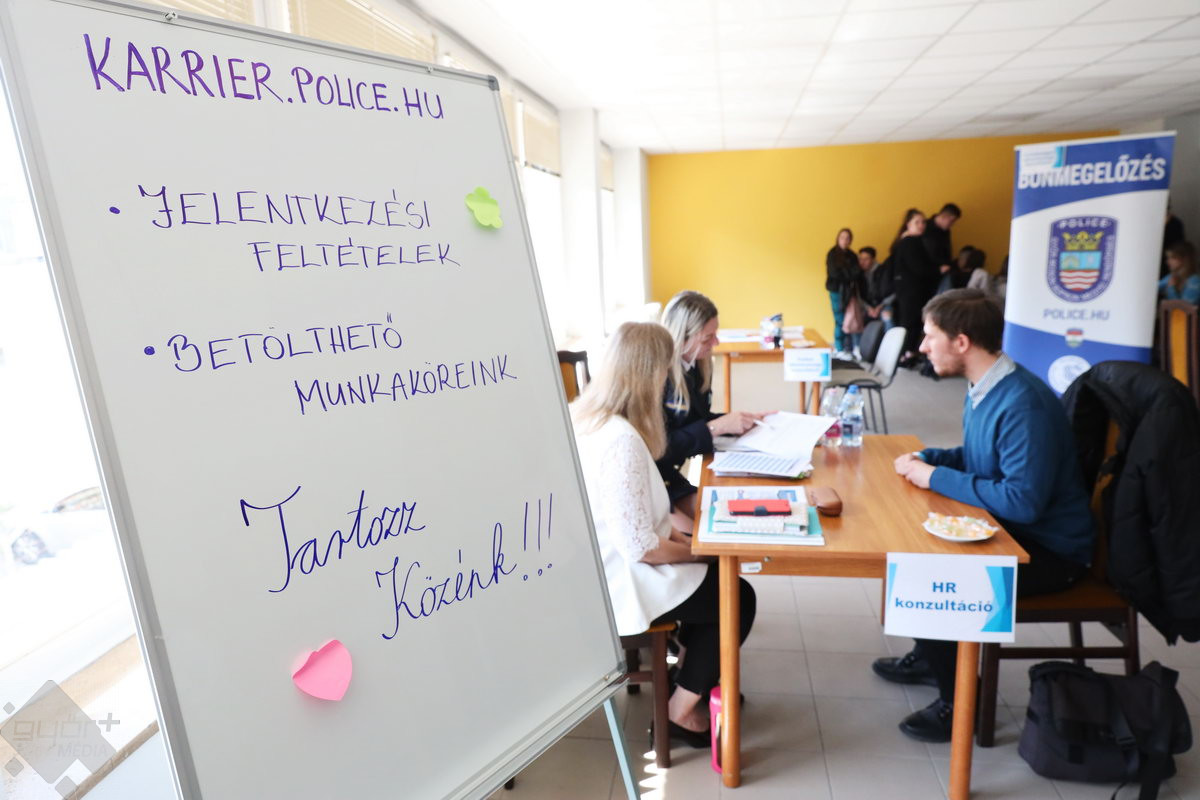 KARRIER.POLICE.HU
• JELENTKEZÉSI
FELTÉTELEK
• BETÖLTHETŐ
MUNKAKÖREINK
Tartozz
Közénk!!!
BŰNMEGELŐZÉS
POLICE
POLICE.HU
HR
konzultáció
győr+
MÉDIA